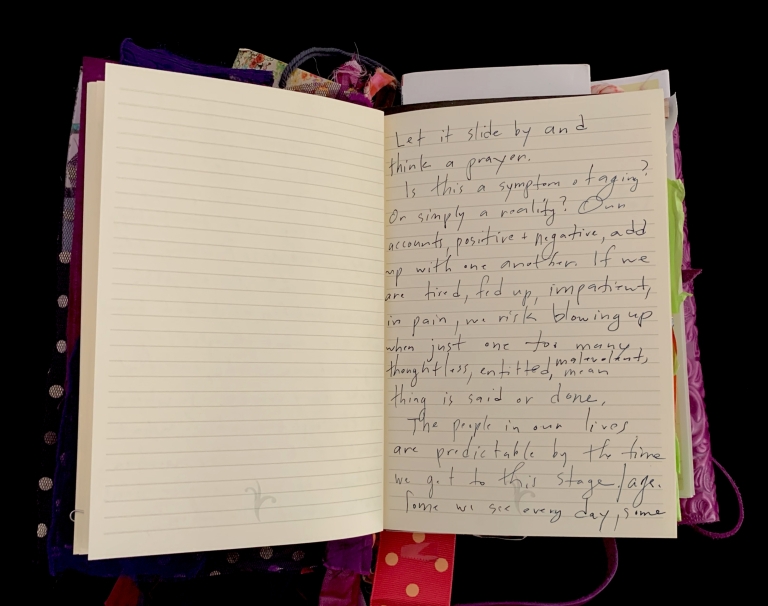 Let it slide by and
think a prayer.
Is this a symptom of aging?
Or simply a reality? Our
accounts, positive + negative, add
up with one another. If we
are tired, fed up, impatient,
in pain, we risk blowing up
when just one too many
malevolent,
thoughtless, entitled, mean
thing is said or done.
The people in our lives
are predictable by the time
we get to this stage/age.
Some we see every day, some